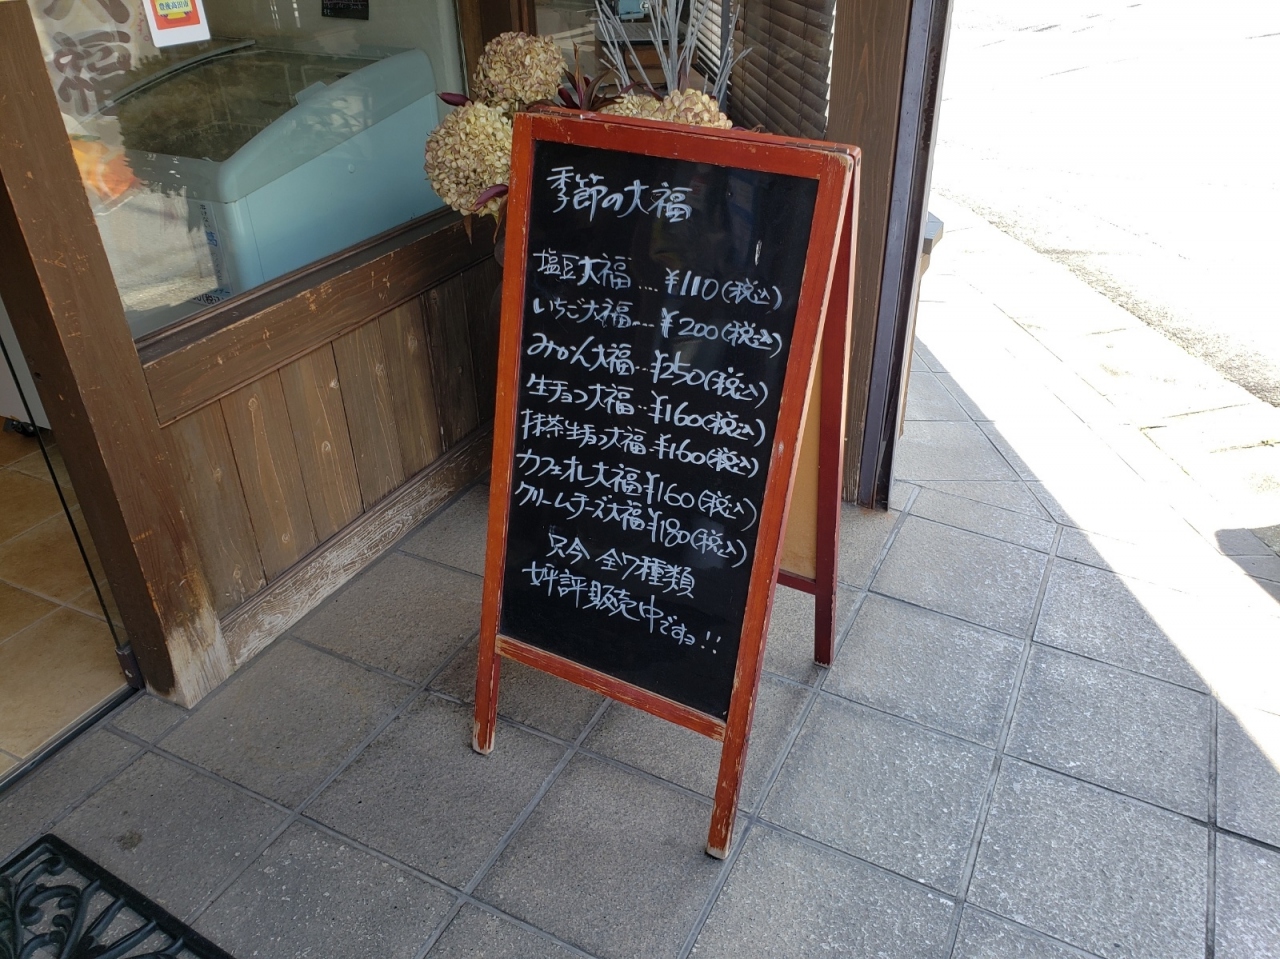 大福
豊後高田市
季節の大福
塩豆大福....¥110(税込)
いちご大福....¥200(税込)
みかん大福...¥250(税込)
生チョコ大福...¥160(税込)
抹茶生チョコ大福..¥160(税込)
カフェオレ大福¥160(税込)
クリームチーズ大福¥180(税込)
只今 全7種類
好評販売中ですョ!!